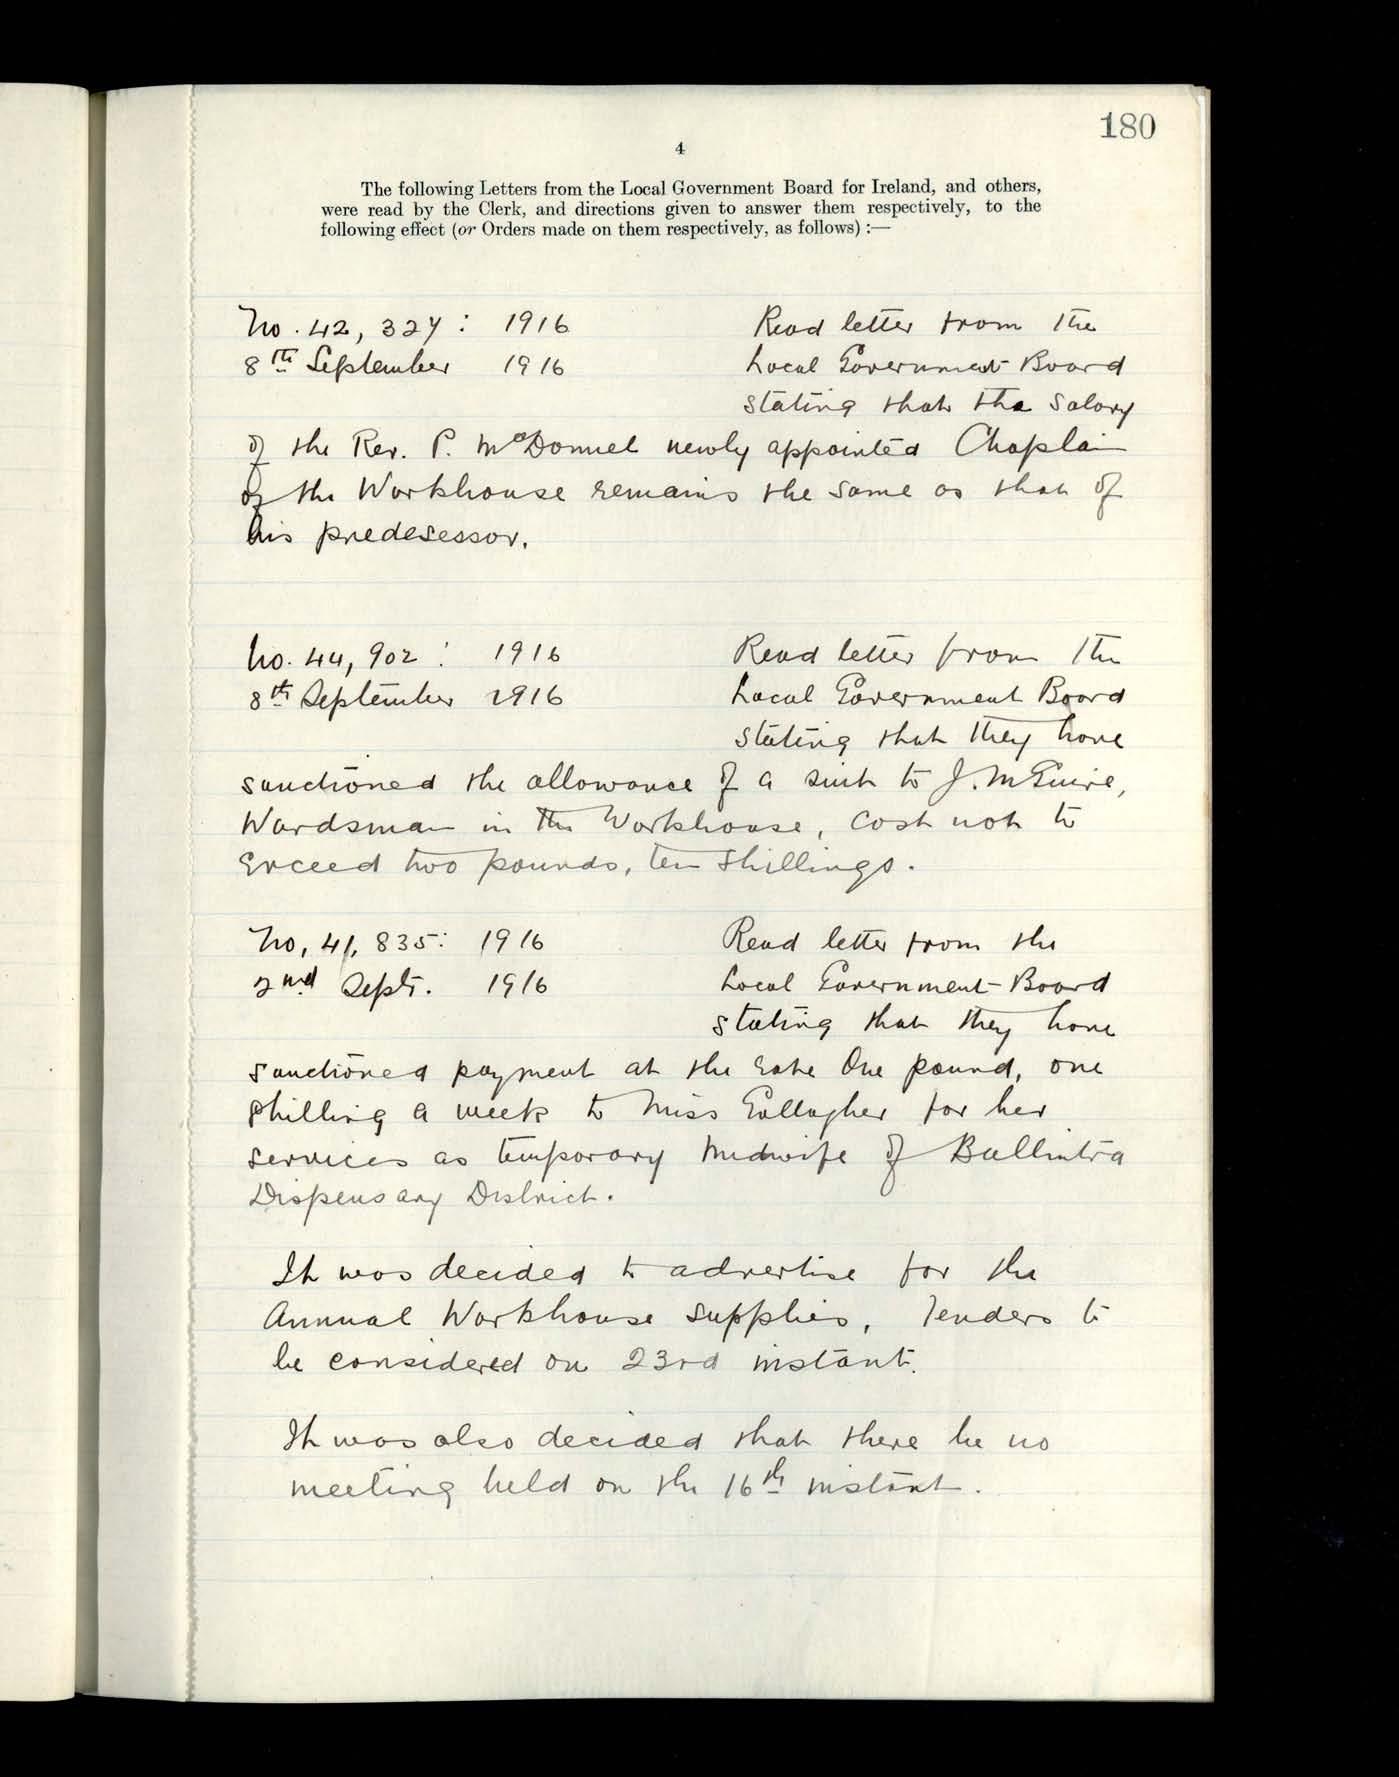 180
4
The following Letters from the Local Government Board for Ireland, and others,
were read by the Clerk, and directions given to answer them respectively, to the
following effect (or Orders made on them respectively, as follows) :—
No. 42, 327 : 1916 Read letter from the
8th September 1916 Local Government Board
stating that the salary
of the Rev. P. McDonnel newly appointed Chaplain
of the Workhouse remains the same as that of
his predesessor.
No. 44, 902 : 1916 Read letter from the
8th September 1916 Local Government Board
stating that they have
sanctioned the allowance of a suit to J. McGuire,
Wardsman in the Workhouse, cost not to
exceed two pounds, ten shillings.
No, 41, 835: 1916 Read letter from the
2nd Sept. 1916 Local Government Board
stating that they have
sanctioned payment at the rate One pound, one
shilling a week to Miss Gallagher for her
services as temporary Midwife of Ballintra
Dispensary District.
It was decided to advertise for the
Annual Workhouse supplies, Tenders to
be considered on 23rd instant.
It was also decided that there be no
meeting held on the 16th instant.